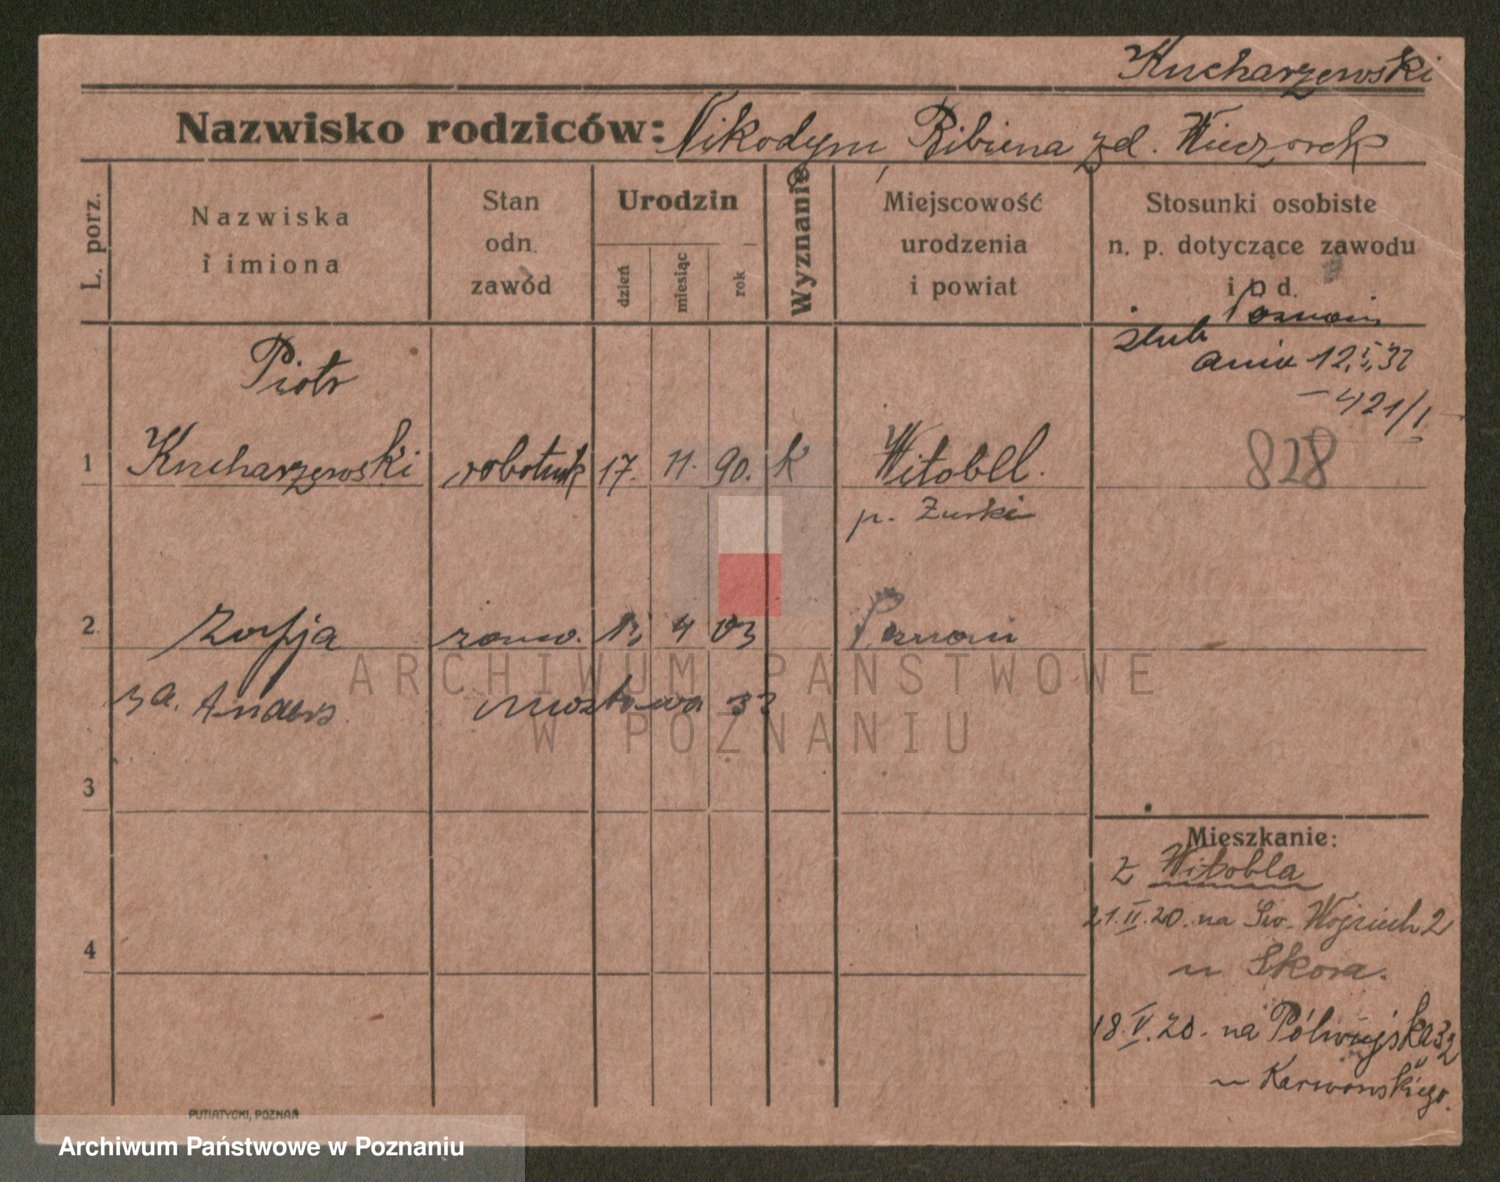 Kucharzewski
Nazwisko rodziców: Nikodym Bibiena zd. Wieczorek
L. porz.
Nazwiska
i imiona
Stan
odn.
zawód
Urodzin
dzień
miesiąc
rok
Wyznanie
Miejscowość
urodzenia
i powiat
Stosunki osobiste
n. p. dotyczące zawodu
i t d.
Poznań
ślub
dnia 12.I.32
421/I
Piotr
1 Kucharzewski robotnik 17. 11. 90. k Witobel. 828
p. Żurki
2 Zofja 13 4 03 Poznań
za. Anders Mostowa 33
3
4
Mieszkanie:
z Witobla
21.II.20. na Św. Wojciech 2
u Skora.
18.V.20. na Półwiejska 32
u Karwowskiego.
PUTIATYCKI, POZNAŃ
ARCHIWUM PAŃSTWOWE
W POZNANIU
Archiwum Państwowe w Poznaniu